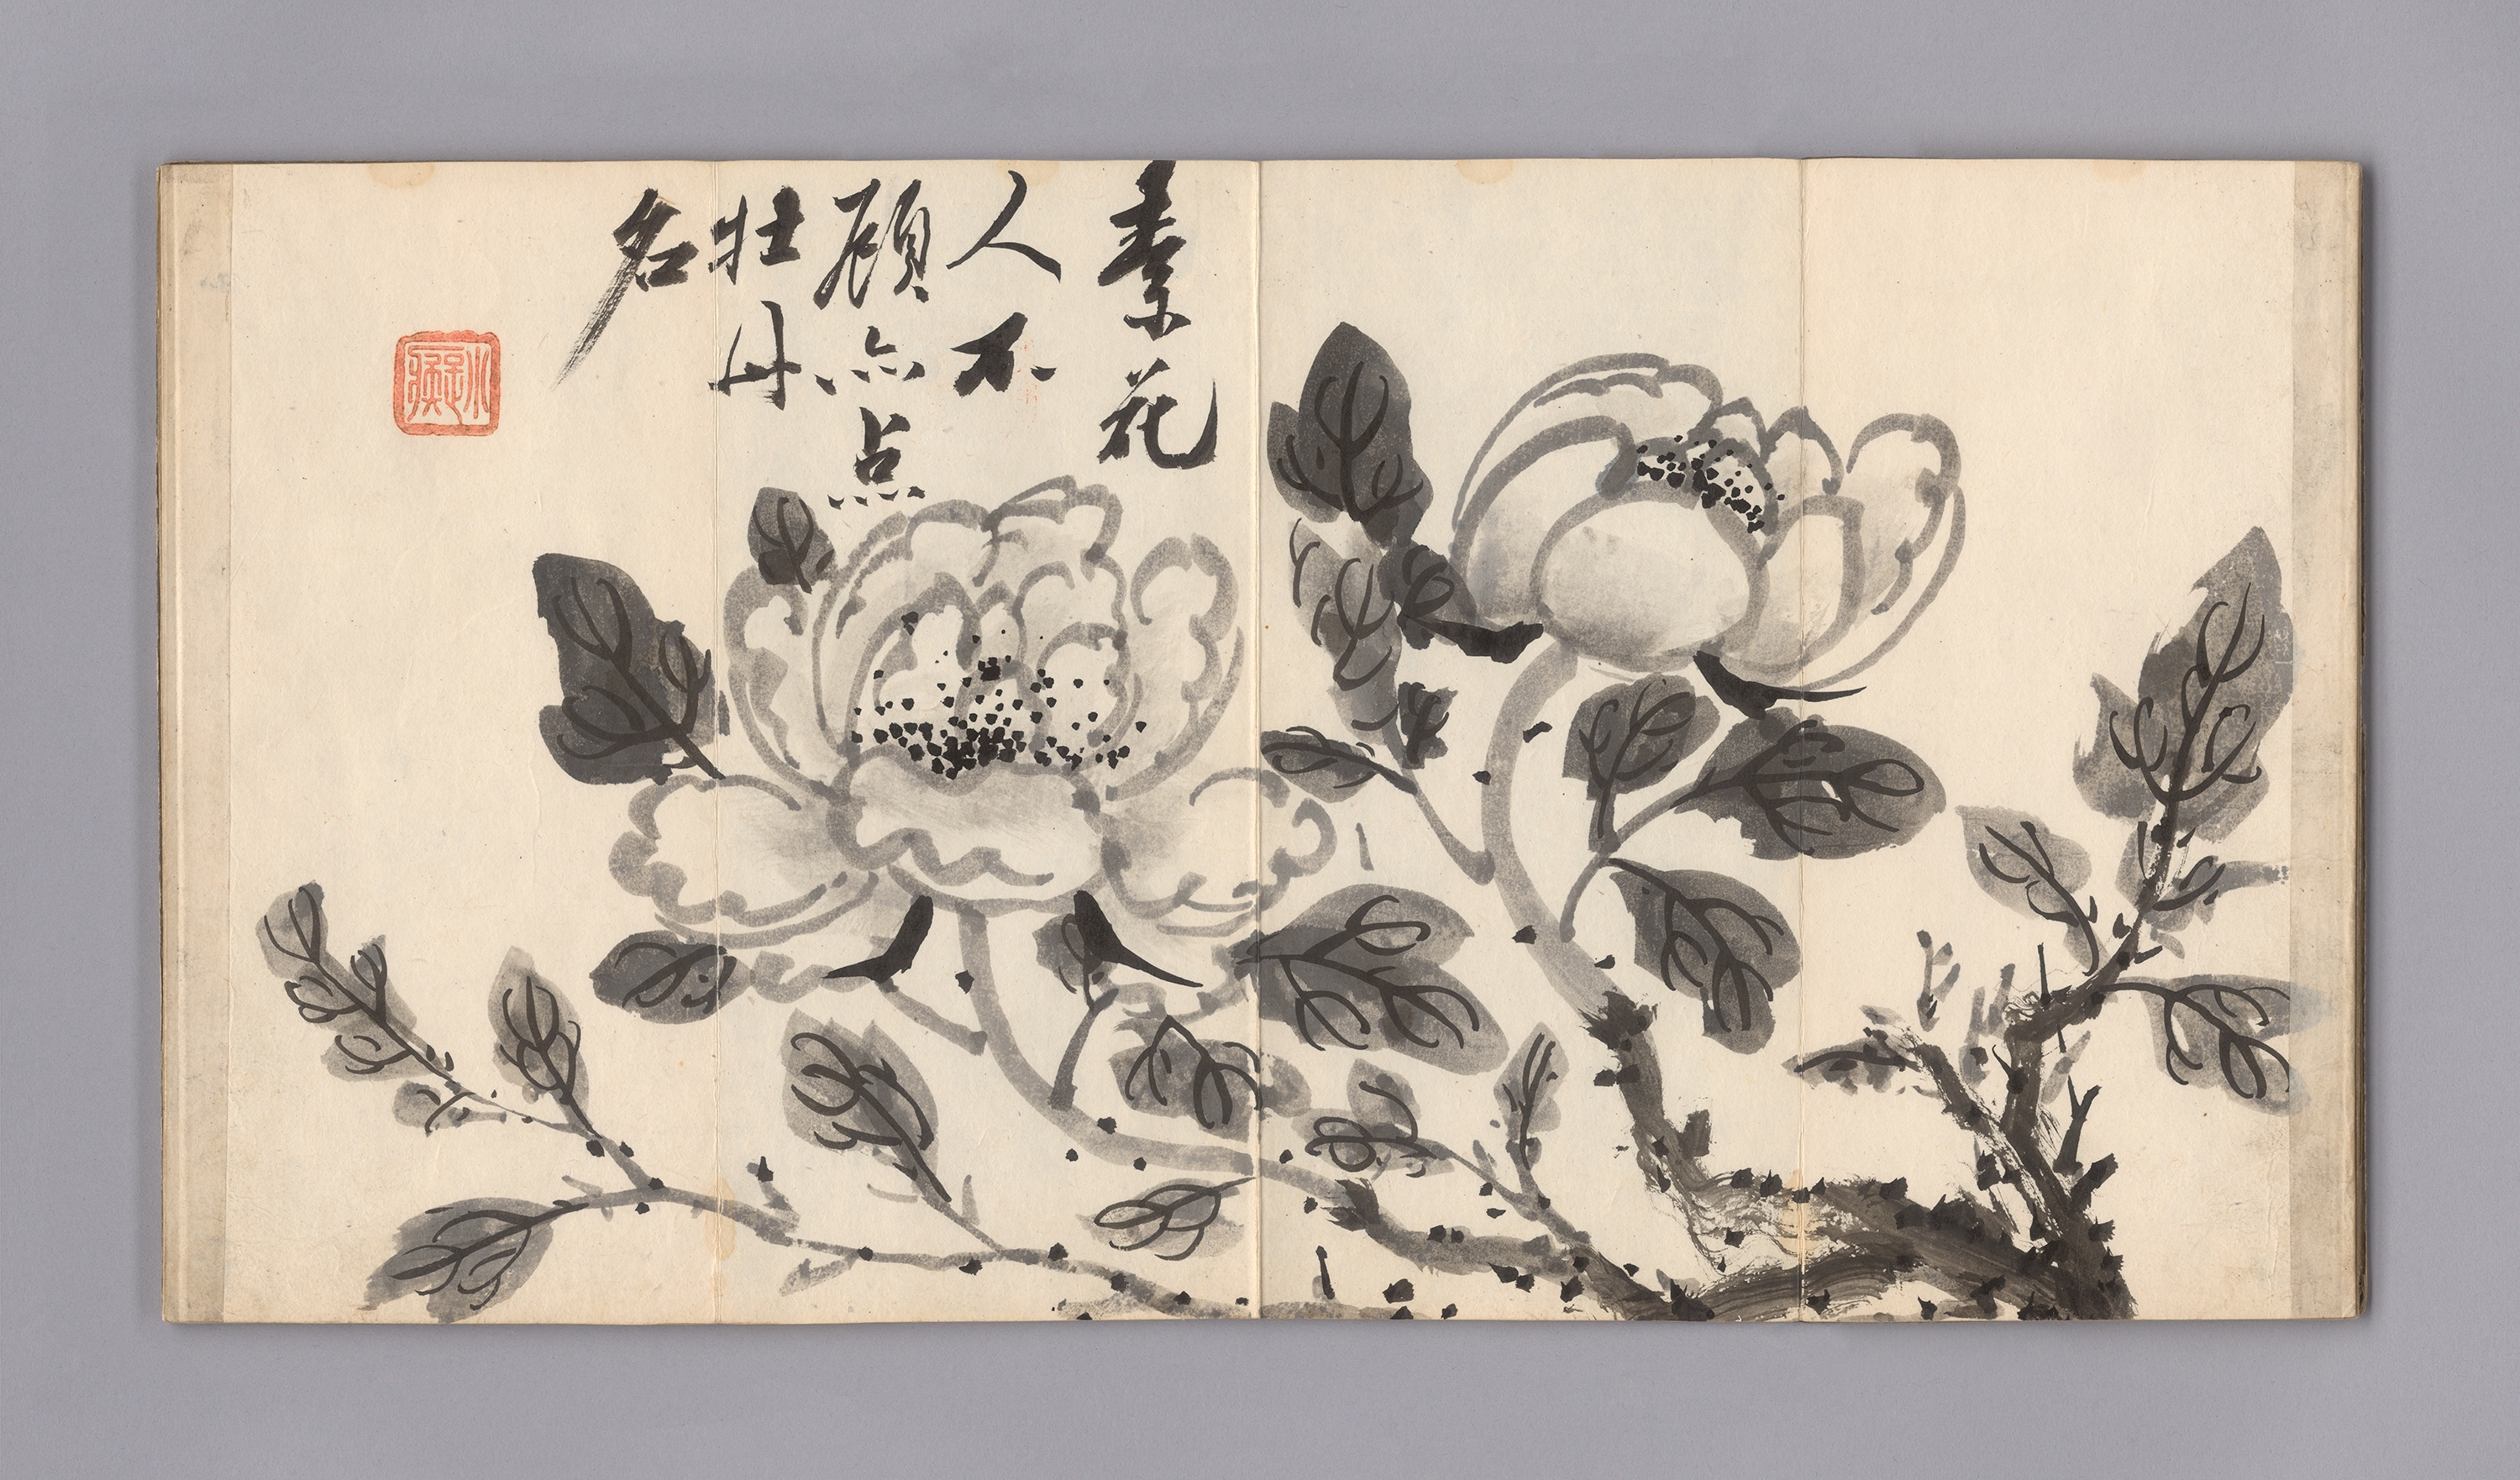 素花
人不
顧亦点
牡丹
名